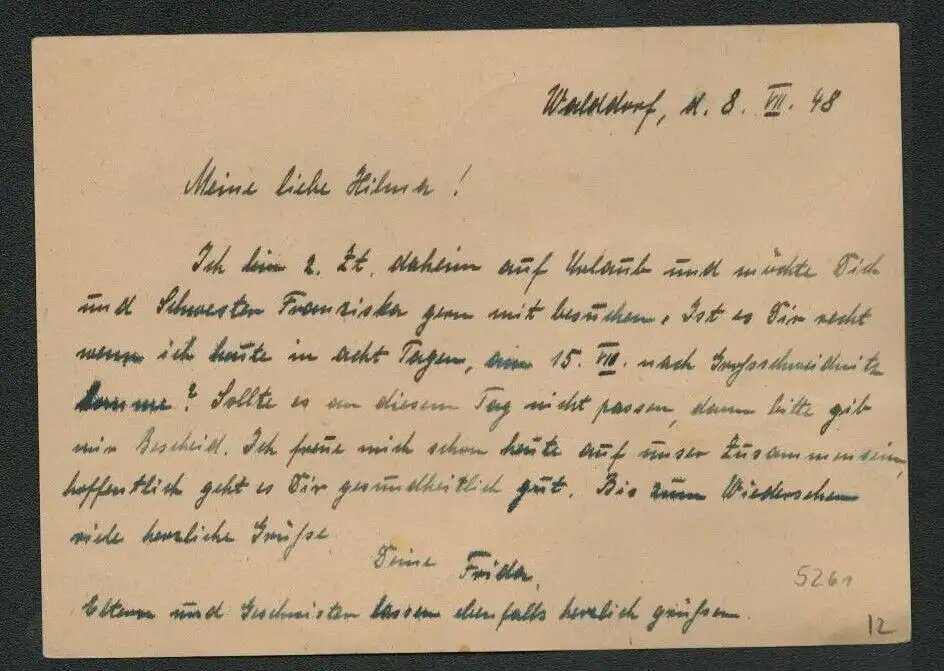 Walddorf, d. 8. VII. 48
Meine liebe Hilma!
Ich bin z. Zt. daheim auf Urlaub und möchte Dich
und Schwester Franziska gern mit besuchen. Ist es Dir recht
wenn ich heute in acht Tagen, am 15. VII. nach Großschweidnitz
komme? Sollte es an diesem Tag nicht passen, dann bitte gib
mir Bescheid. Ich freue mich schon heute auf unser Zusammensein,
hoffentlich geht es Dir gesundheitlich gut. Bis zum Wiedersehen
viele herzliche Grüße
Deine Frida.
Eltern und Geschwister lassen ebenfalls herzlich grüßen.
5261
12